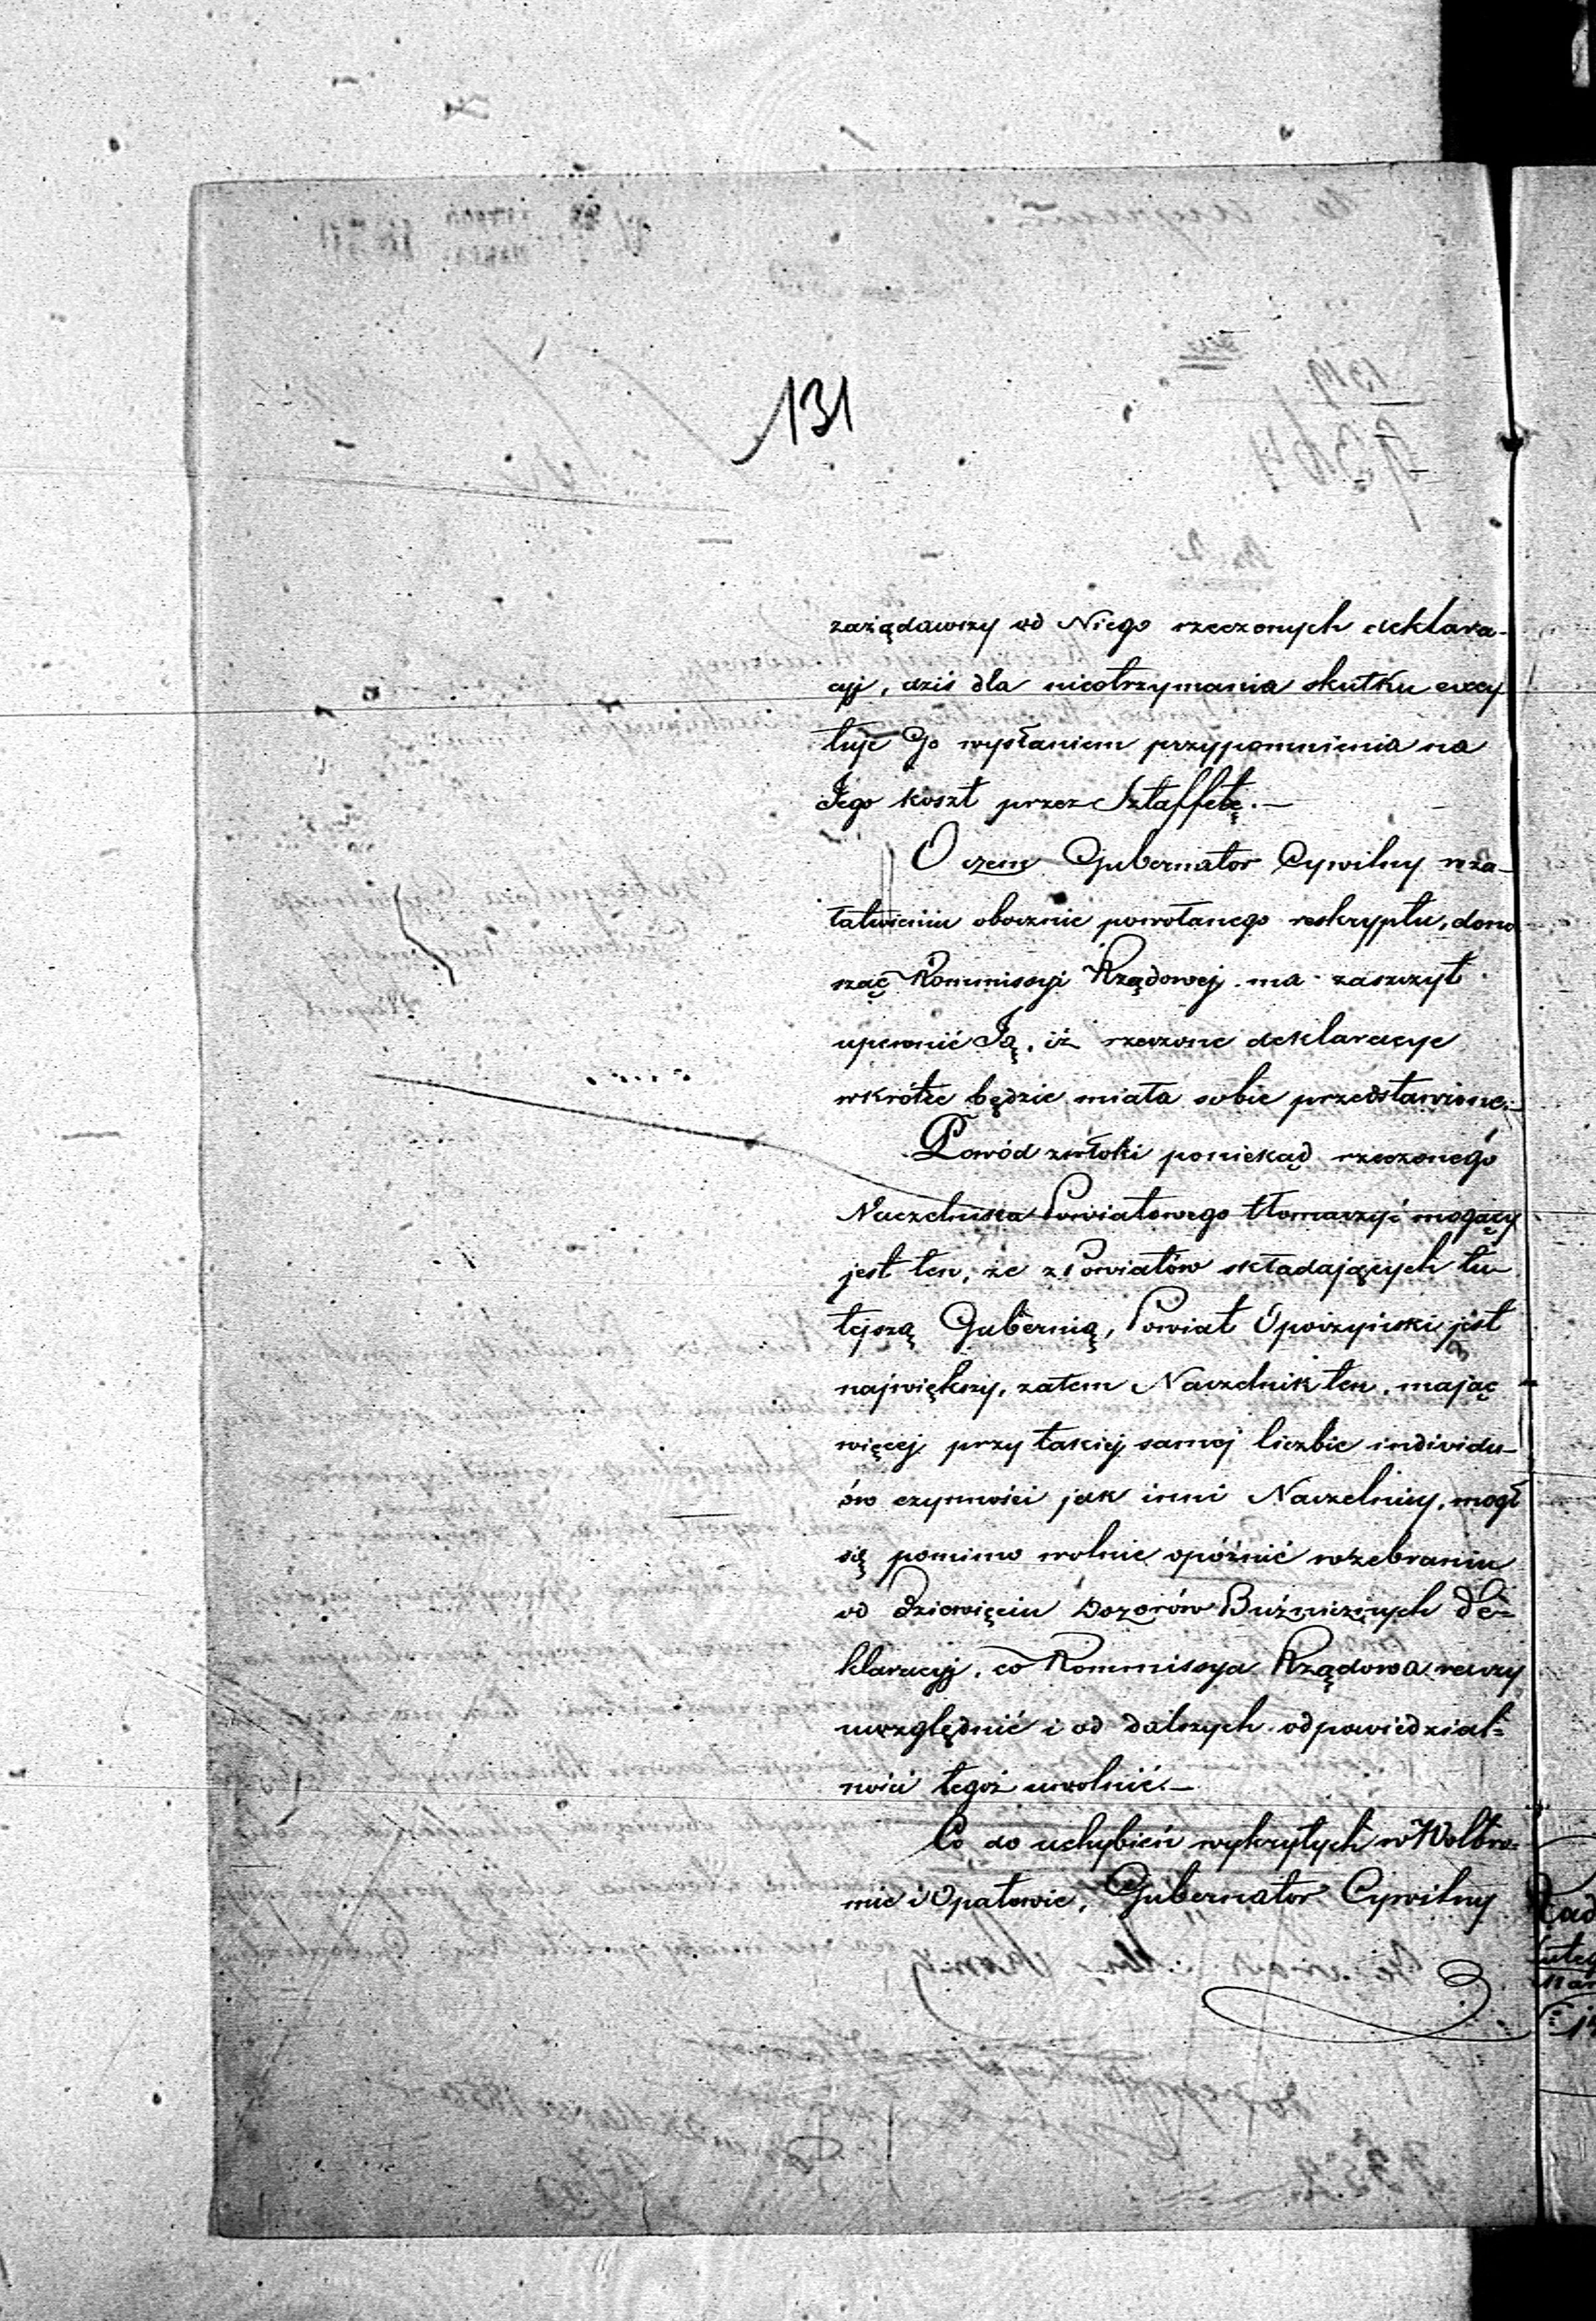 131
zażądawszy od Niego rzeczonych deklara-
cyj, dziś dla nieotrzymania skutku excy
tuje Go wysłaniem przypomnienia na
Jego koszt przez Sztaffetę.—
O czem Gubernator Cywilny w za-
łatwieniu obocznie powołanego reskryptu, dono
sząc Kommissyi Rządowej ma zaszczyt
upewnić Ją, iż rzeczone deklaracye
wkrótce będzie miała sobie przedstawione.—
Powód zwłoki poniekąd rzeczonego
Naczelnika Powiatowego tłomaczyć mogący
jest ten, że z Powiatów składających tu
tejszą Gubernią, Powiat Opoczyński jest
największy, zatem Naczelnik ten, mając
więcej przy takiej samej liczbie individu-
ów czynności jak inni Naczelnicy, mógł
się pomimo wolnie opóźnić w zebraniu
od dziewięciu Dozorów Bużniczych de=
klaracyj, co Kommissya Rządowa raczy
uwzględnić i od dalszych odpowiedzial=
ności tegoż uwolnić.—
Co do uchybień wykrytych w Wolbro=
mie i Opatowie, Gubernator Cywilny